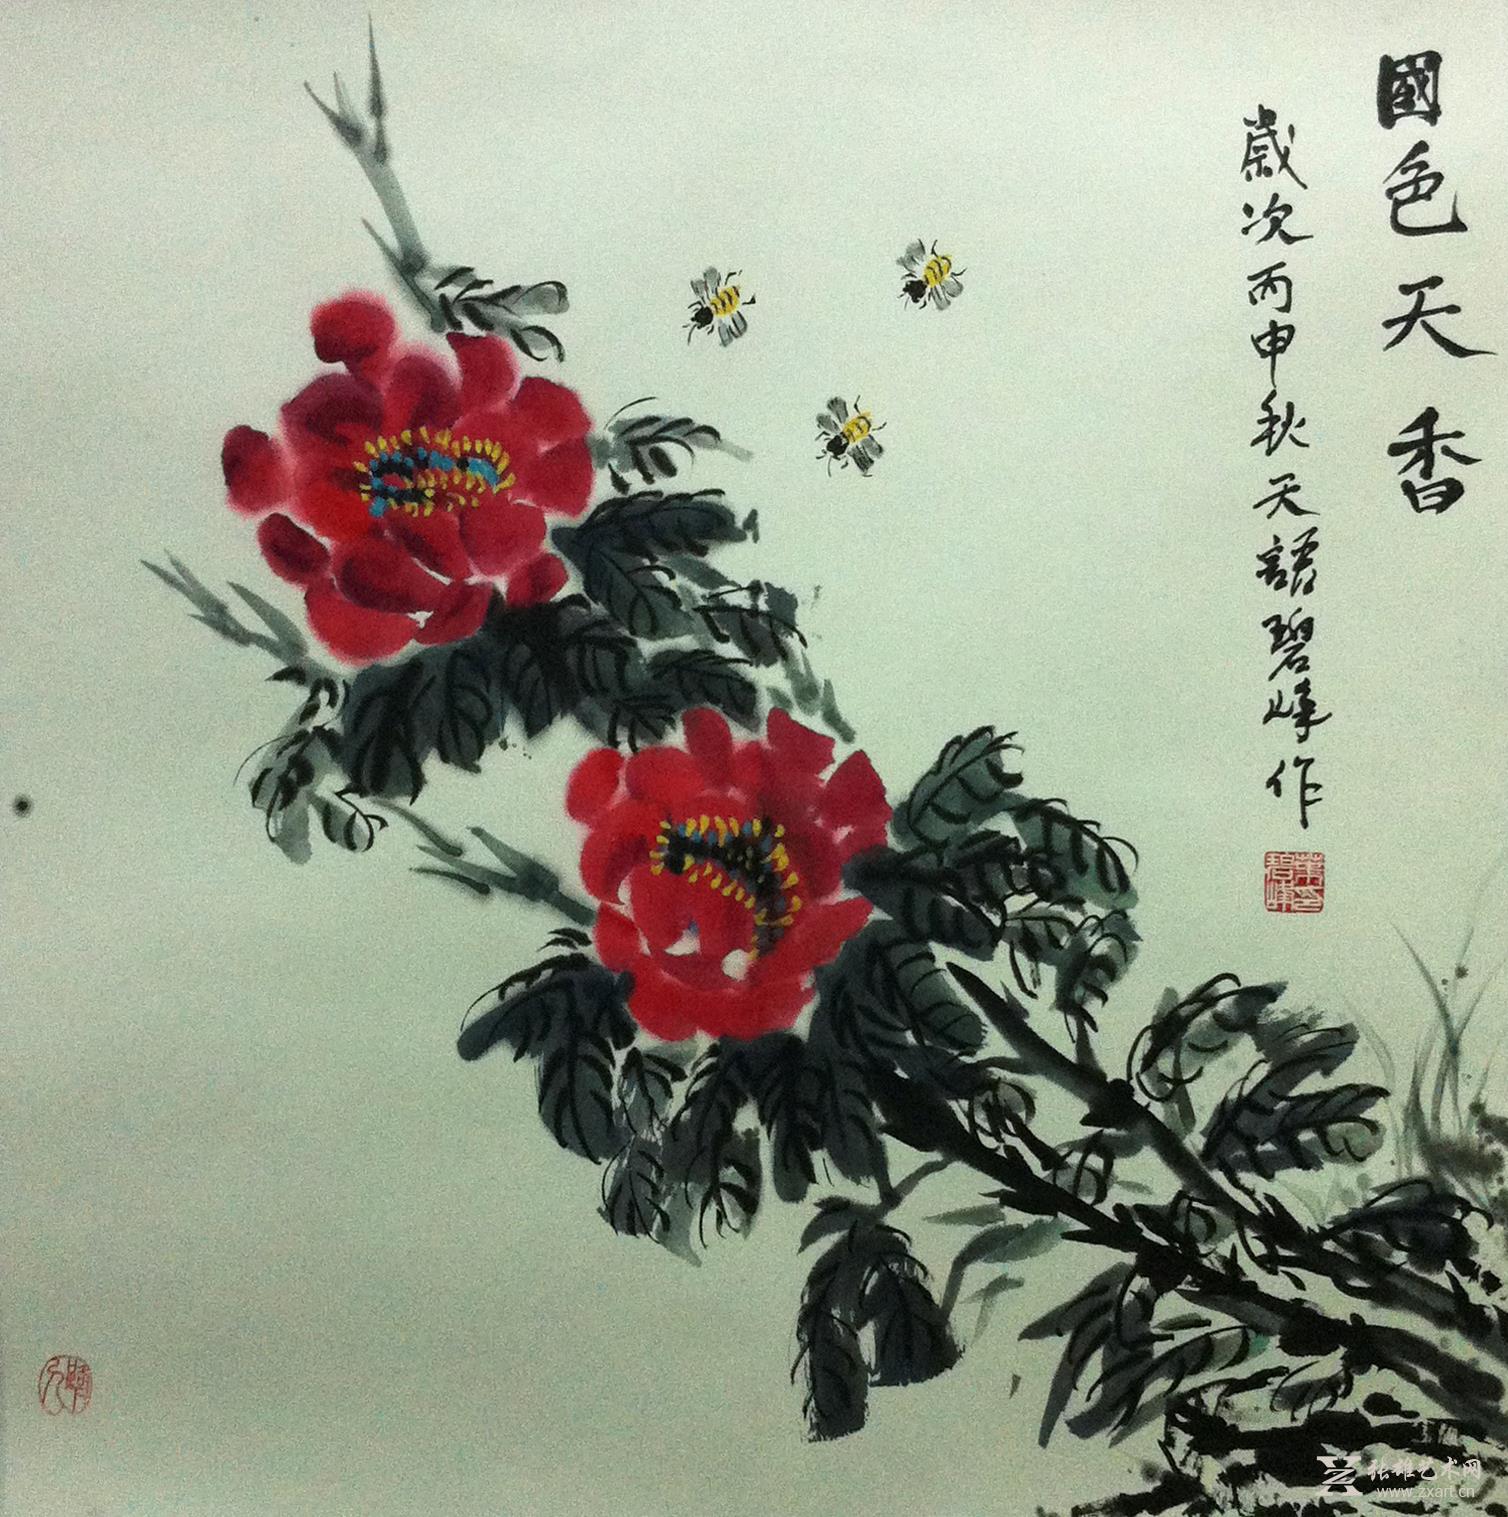 國色天香
歲次丙申秋天語碧峰作
張雄艺术网
www.zxart.cn